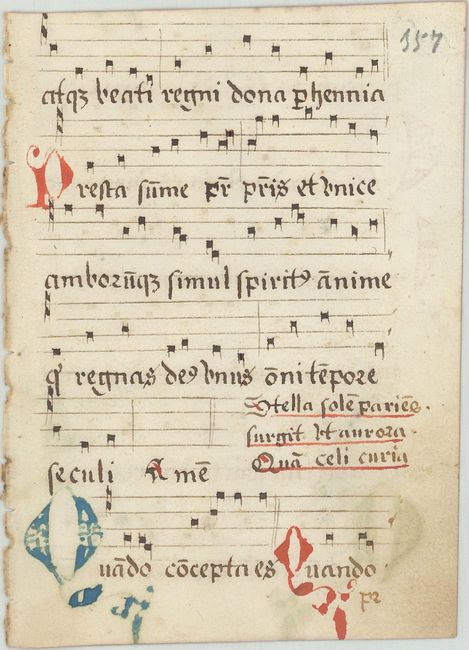 157
atqz beati regni dona phennia
Presta sūme pr̄ pr̄is et vnice
amborūqz simul spirit9 añime
q̄ regnas de9 vnus om̄i tēpore
Stella solē pariēs.
surgit vt aurora.
seculi Amē
Quā celi curia
Quādo cōcepta es Quando
pr